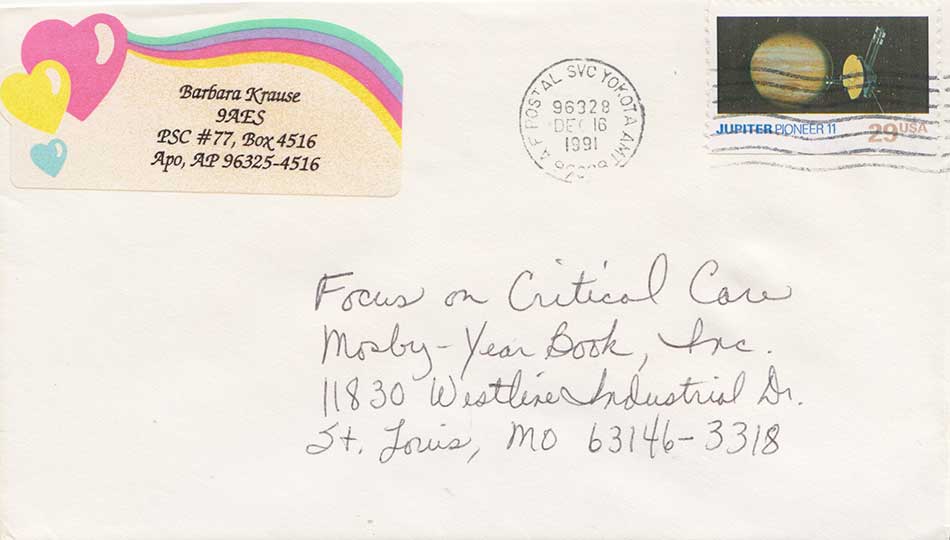 Barbara Krause
9AES
PSC #77, Box 4516
Apo, AP 96325-4516
& F POSTAL SVC YOKOTA AMF
96328
DEC 16
1991
JUPITER PIONEER 11 29 USA
Focus on Critical Care
Mosby-Year Book, Inc.
11830 Westline Industrial Dr.
St. Louis, MO 63146-3318